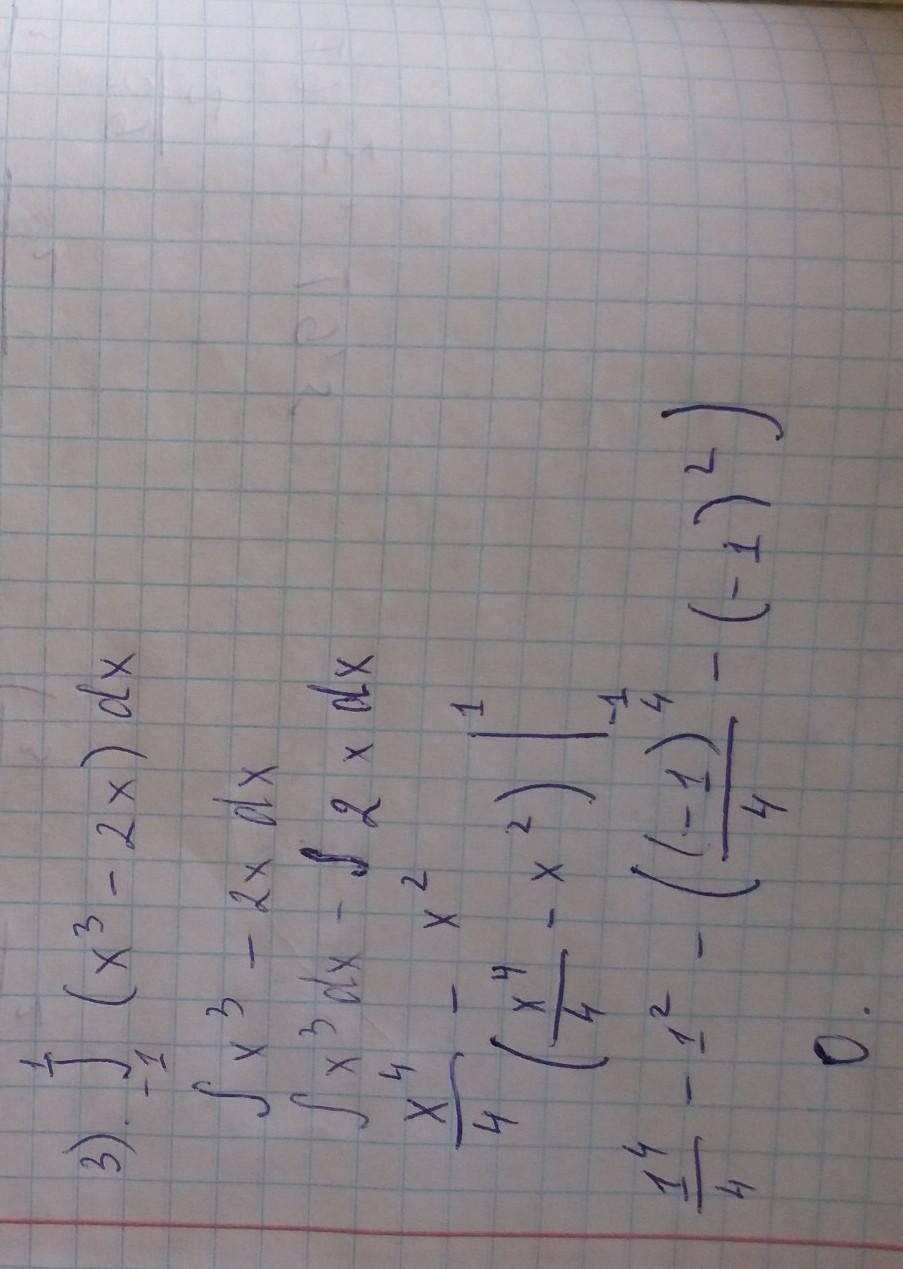 3). ∫₋₁¹ (x³ - 2x) dx
∫ x³ - 2x dx
∫ x³ dx - ∫ 2 x dx
x⁴/4 - x²
(x⁴/4 - x²) |₋₁¹
1⁴/4 - 1² - ((-1)⁴/4 - (-1)²)
0.